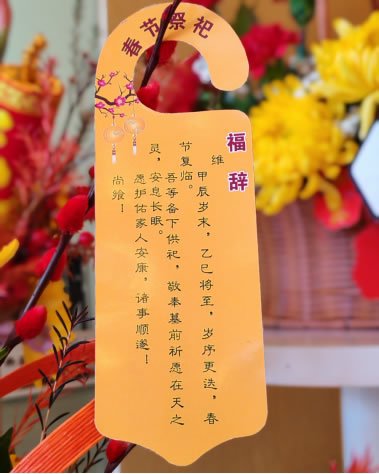 春节祭祀
福辞
维
甲辰岁末，乙巳将至，岁序更迭，春
节复临。
吾等备下供祀，敬奉墓前祈愿在天之
灵，安息长眠。
愿护佑家人安康，诸事顺遂！
尚飨！